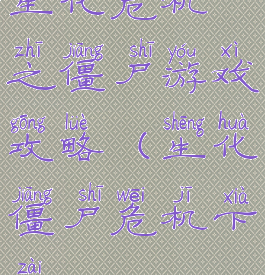 生化危机
zhī jiāng shī yóu xì
之僵尸游戏
gōng lüè shēng huà
攻略（生化
jiāng shī wēi jī xià
僵尸危机下
zài